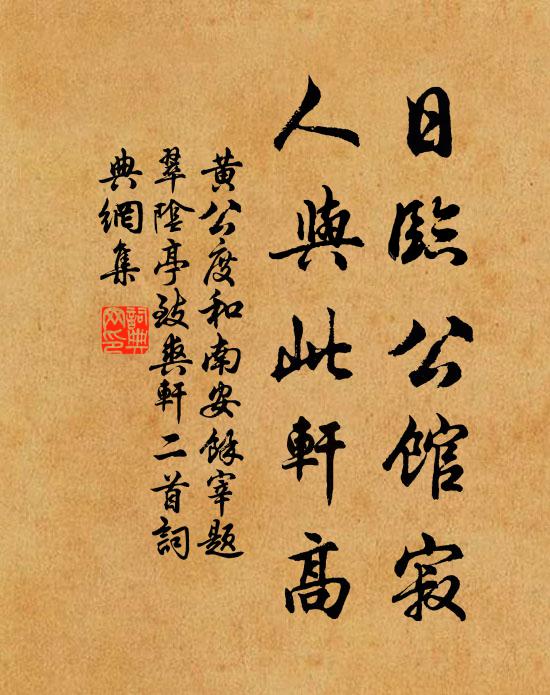 日臨公館寂
人與此軒高
黄公度和南安餘宰題
翠陰亭致爽軒二首詞
典網集
詞典
网印